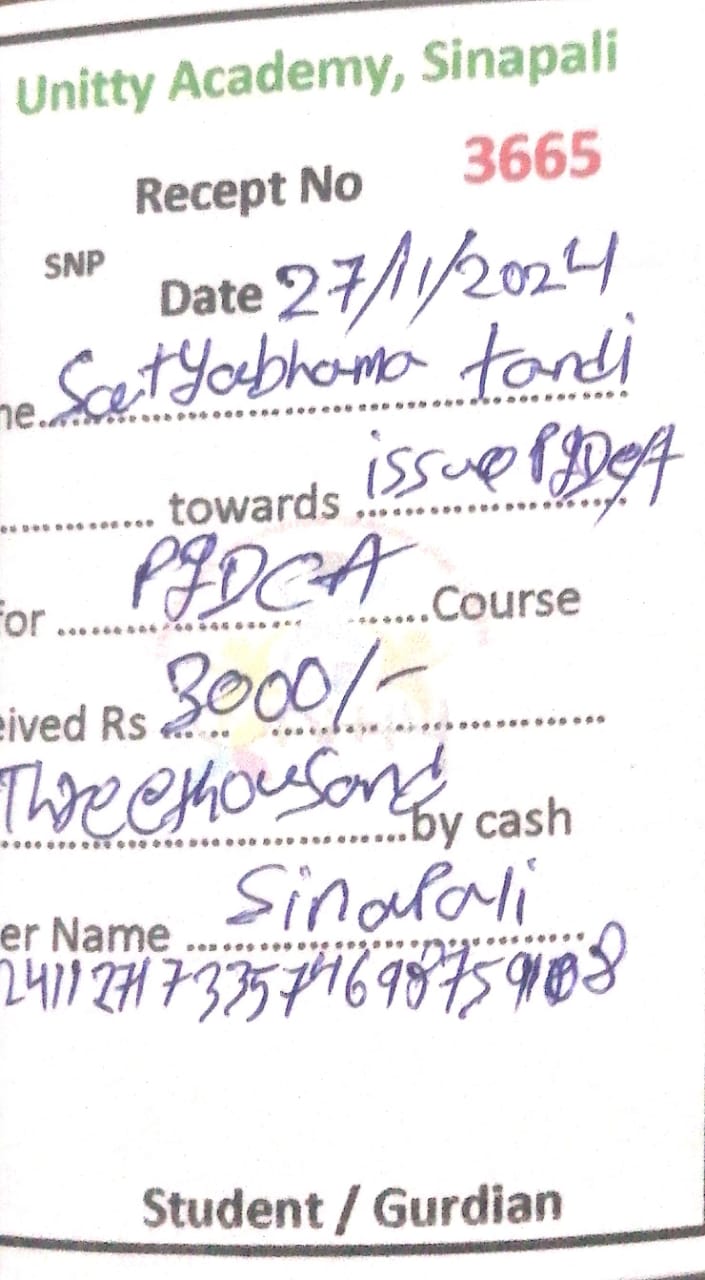 Unitty Academy, Sinapali
Recept No 3665
SNP
Date 27/11/2024
ne Satyabhama tandi
towards issue PGDCA
for PGDCA Course
eived Rs 3000/-
Three thousand by cash
er Name Sinapali
Student / Gurdian